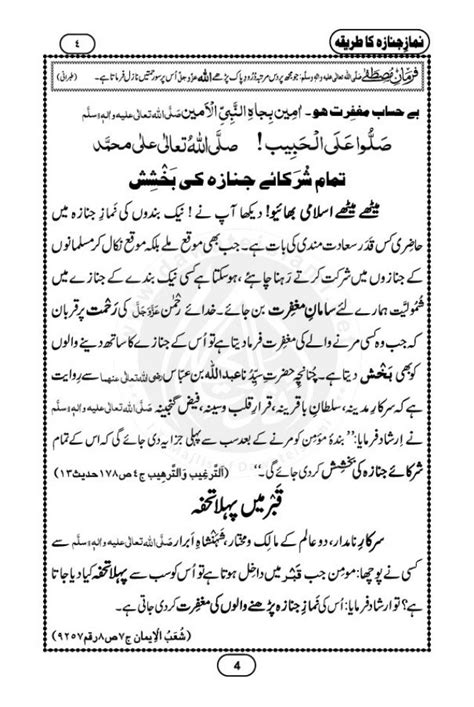 نمازِ جنازہ کا طریقہ
٤
فرمانِ مصطفٰے صلی اللہ تعالیٰ علیہ والہٖ وسلم: جو مجھ پر دس مرتبہ دُرُود پاک پڑھے اللہ عزوجل اُس پر سو رحمتیں نازل فرماتا ہے۔ (طبرانی)
بے حساب مغفِرت ہو۔ اٰمِین بِجاہِ النَّبِیِّ الْاَمین صَلَّی اللہ تعالٰی علیہ والہٖ وسلَّم
صَلُّوا عَلَی الْحَبِیب! صلَّی اللہُ تعالٰی علٰی محمَّد
تمام شُرَکائے جنازہ کی بَخْشِش
میٹھے میٹھے اسلامی بھائیو! دیکھا آپ نے! نیک بندوں کی نَمازِ جنازہ میں
حاضِری کس قَدَر سعادت مندی کی بات ہے۔ جب بھی موقع ملے بلکہ موقع نکال کر مسلمانوں
کے جنازوں میں شرکت کرتے رَہنا چاہئے، ہوسکتا ہے کسی نیک بندے کے جنازے میں
شُمُولِیَّت ہمارے لئے سامانِ مغفِرت بن جائے۔ خدائے رَحْمٰن عَزَّوَجَلَّ کی رَحْمت پر قربان
کہ جب وہ کسی مرنے والے کی مغفِرت فرما دیتا ہے تو اُس کے جنازے کا ساتھ دینے والوں
کو بھی بَخْش دیتا ہے۔ چُنانچِہ حضرتِ سیِّدُنا عبدُاللہ بن عبّاس رضی اللہ تعالٰی عنہما سے رِوایت
ہے کہ سرکارِ مدینہ، سلطانِ باقرینہ، قرارِ قلب وسینہ، فیض گنجینہ صَلَّی اللہ تعالٰی علیہ والہٖ وسلَّم
نے اِرشاد فرمایا: ”بندۂ مؤمِن کو مرنے کے بعد سب سے پہلی جزا یہ دی جائے گی کہ اس کے تمام
شُرَکائے جنازہ کی بَخْشِش کر دی جائے گی۔“ (اَلتَّرغِیب وَالتَّرھِیب ج٤ ص١٧٨ حدیث١٣)
قَبْر میں پہلا تحفہ
سرکارِ نامدار، دو عالم کے مالِک ومختار، شَہَنْشاہِ اَبرار صَلَّی اللہ تعالٰی علیہ والہٖ وسلَّم سے
کسی نے پوچھا: مومِن جب قَبْر میں داخِل ہوتا ہے تو اُس کو سب سے پہلا تحفہ کیا دیا جاتا
ہے؟ تو ارشاد فرمایا: اُس کی نَمازِ جنازہ پڑھنے والوں کی مغفِرت کر دی جاتی ہے۔
(شُعَبُ الْاِیمان ج٧ ص٨ رقم ٩٢٥٧)
4